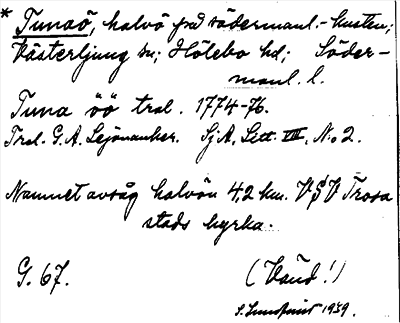 * Tunaö, halvö på södermanl.-kusten;
Västerljung sn; Hölebo hd; Söder-
manl. l.
Tuna öö trsl. 1774-76.
Trsl. G. A. Lejonanker. SjA, Litt. VIII, No 2.
Namnet avsåg halvön 4,2 km. VSV Trosa
stads kyrka.
G. 67. (Vänd!)
S. Lundqvist 1939.